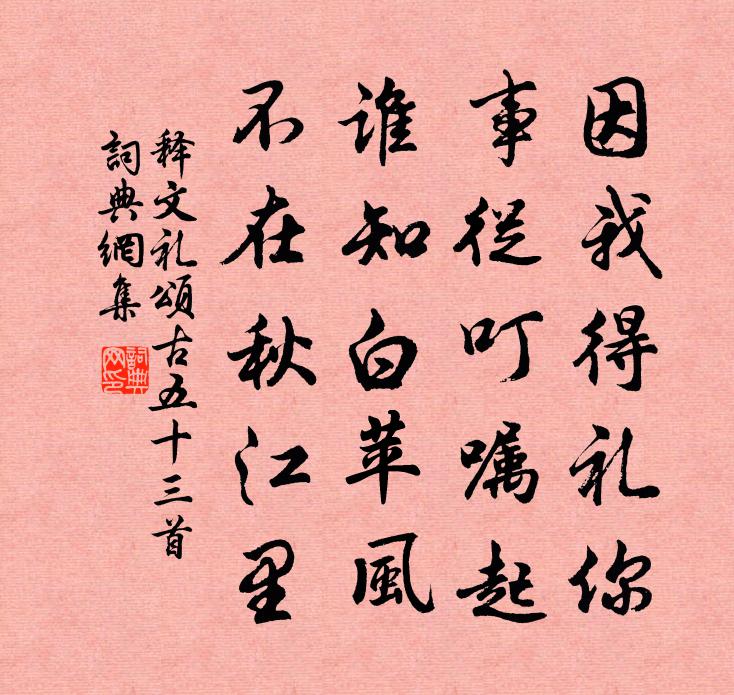 因我得礼你
事從叮嘱起
谁知白苹風
不在秋江里
释文礼頌古五十三首
詞典網集
詞典網印